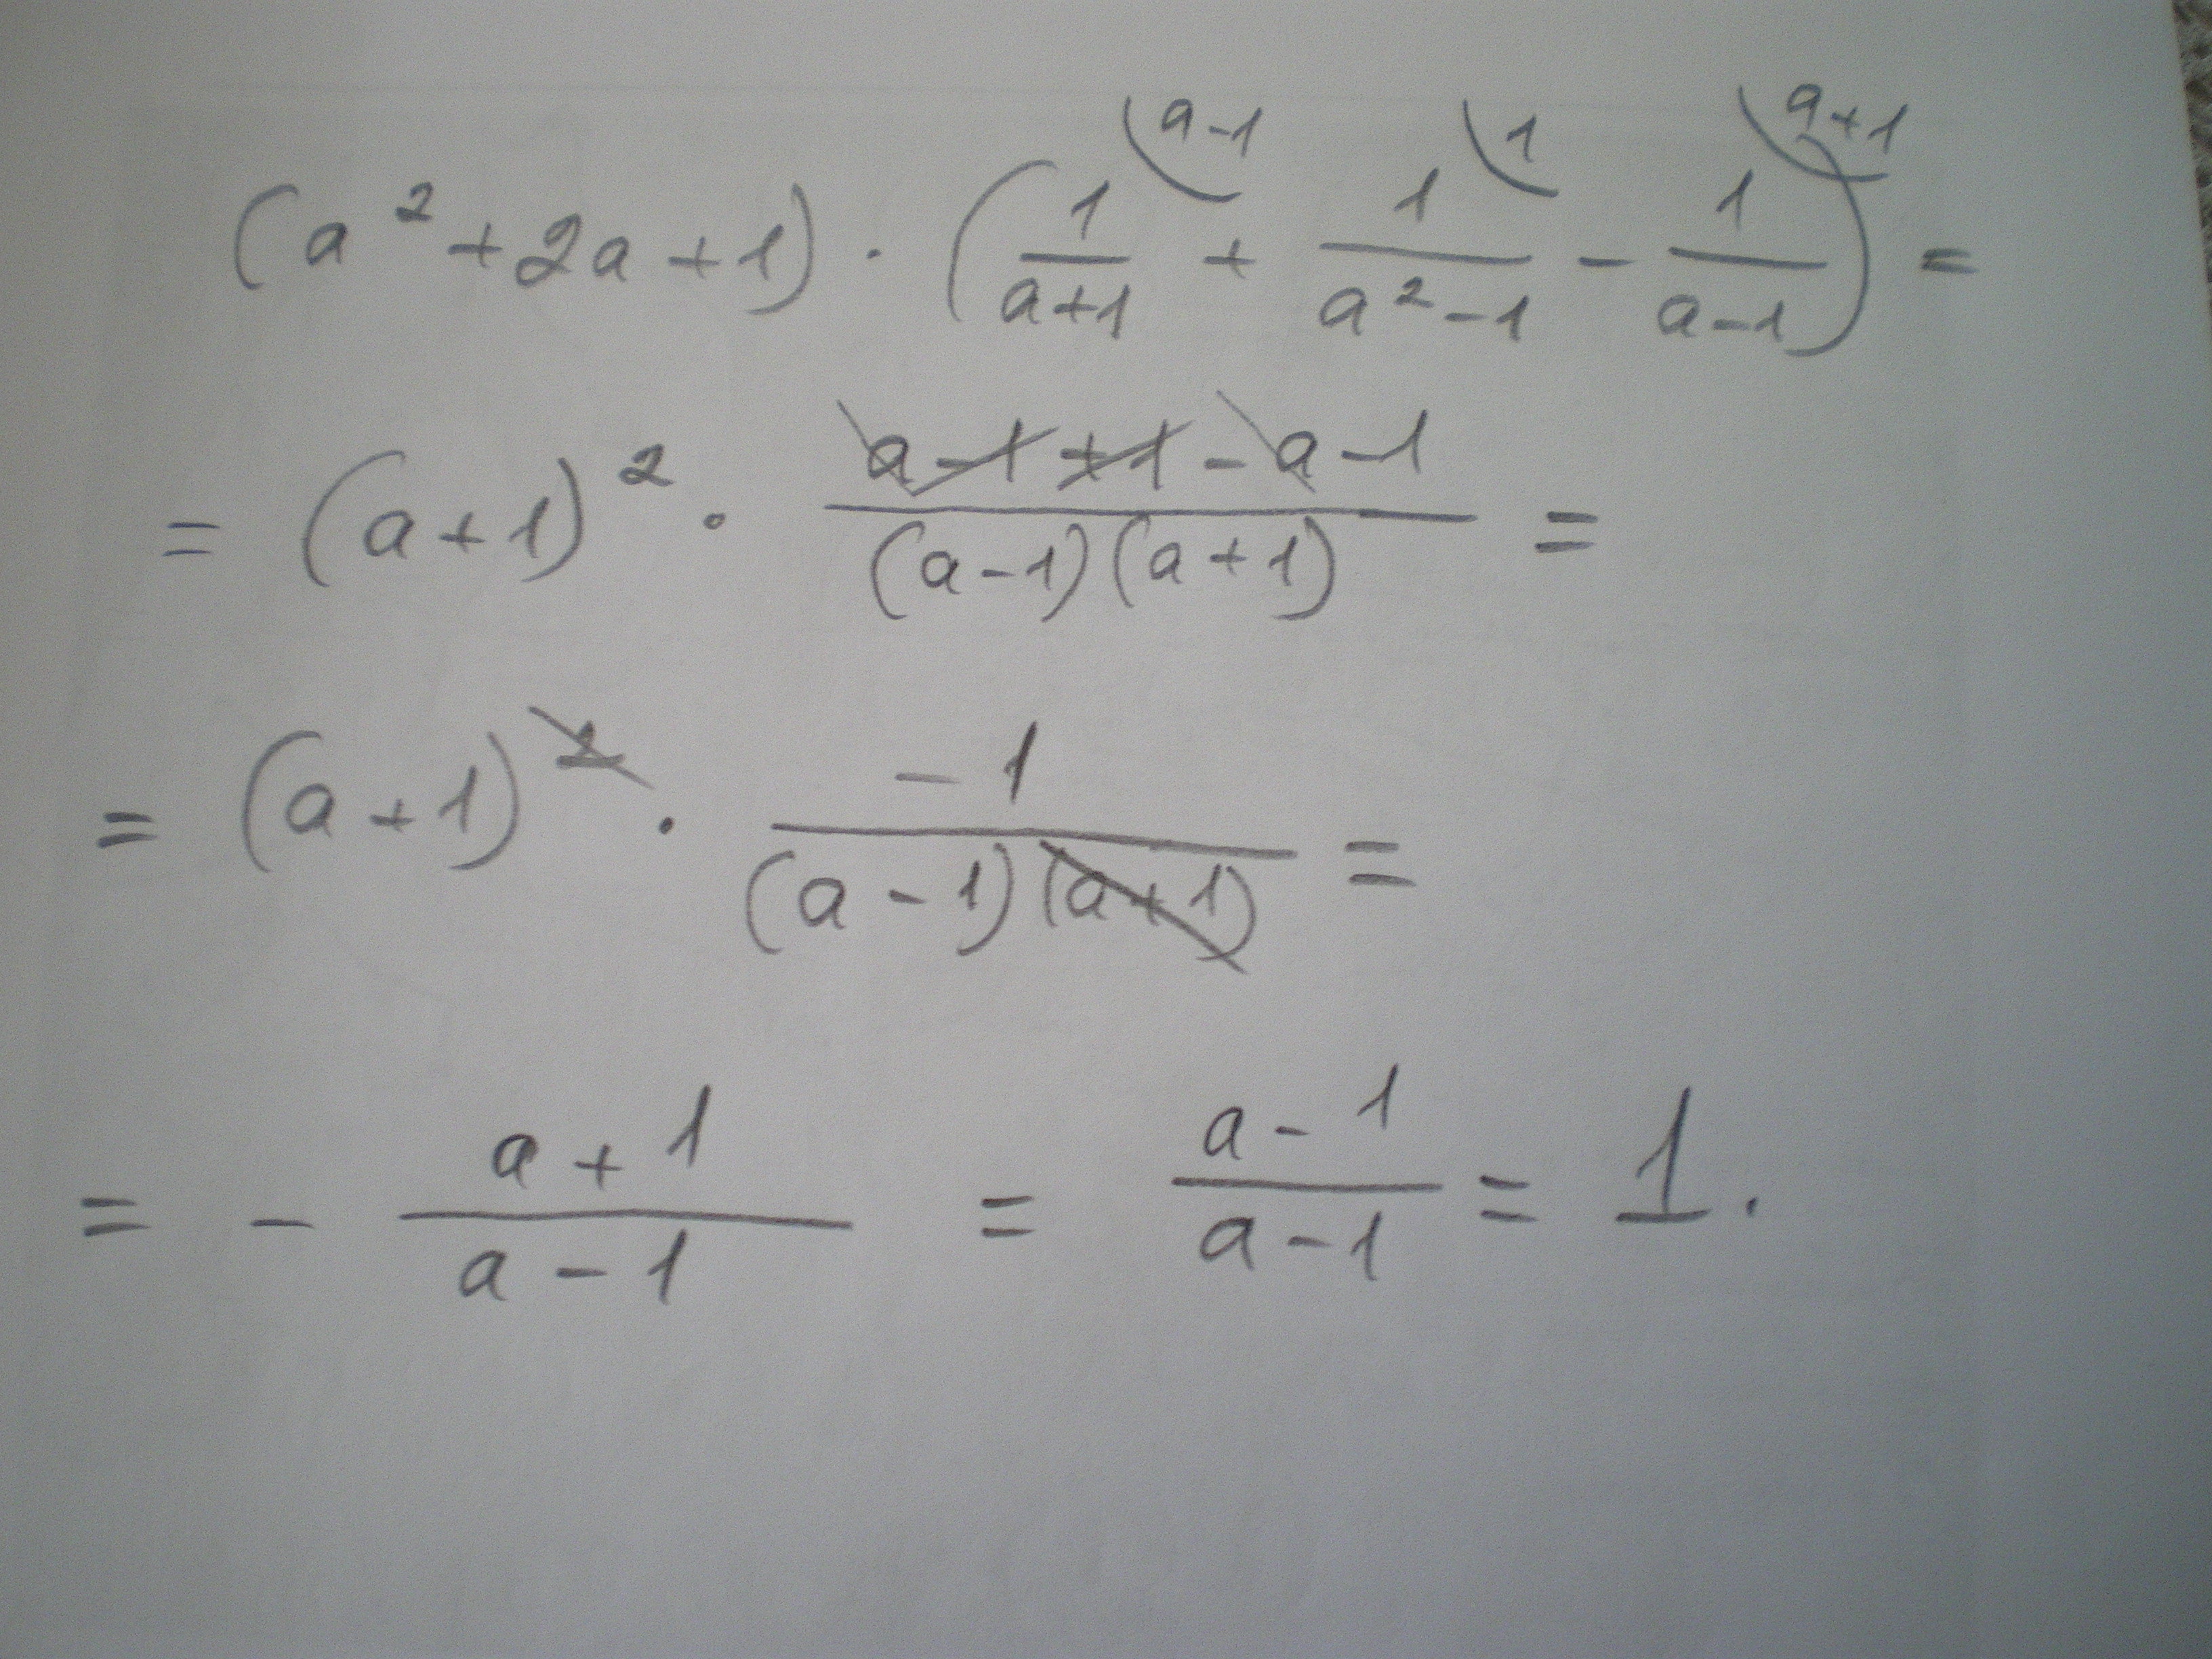 (a² + 2a + 1) · (1/(a+1) + 1/(a²-1) - 1/(a-1)) = \a-1 \1 \a+1
= (a+1)² · (a-1+1-a-1)/((a-1)(a+1)) =
= (a+1)² · -1/((a-1)(a+1)) =
= - (a+1)/(a-1) = (a-1)/(a-1) = 1.